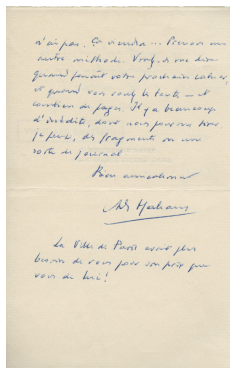 n'ai pas. Ça viendra... Prenons une
autre méthode. Voulez-vous me dire
quand paraît votre prochain cahier,
et quand vous voulez le texte — et
combien de pages. Il y a beaucoup
d'inédits, dont nous pouvons tirer,
je pense, des fragments ou une
sorte de journal.
Bien
La Ville de Paris avait plus
besoin de vous pour son prix que
vous de lui!